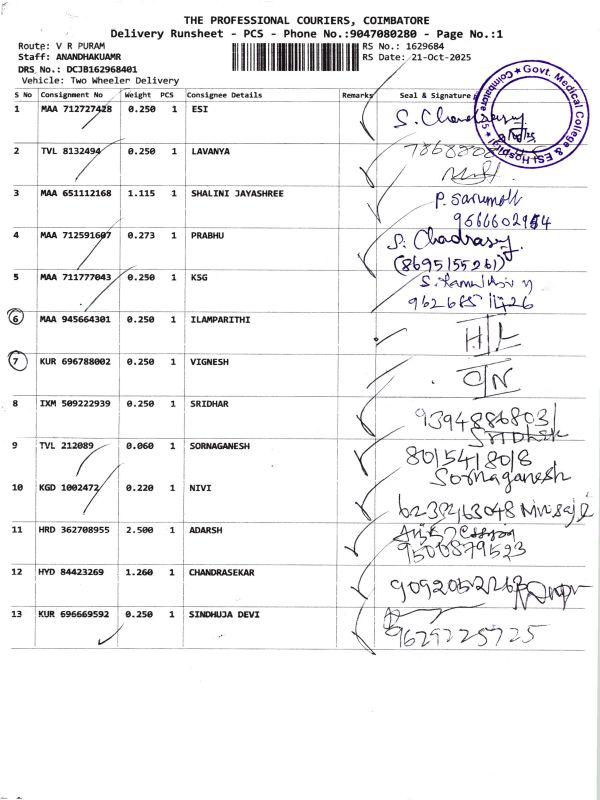 THE PROFESSIONAL COURIERS, COIMBATORE
Delivery Runsheet - PCS - Phone No.:9047080280 - Page No.:1
Route: V R PURAM
Staff: ANANDHAKUAMR
DRS No.: DCJB162968401
Vehicle: Two Wheeler Delivery
RS No.: 1629684
RS Date: 21-Oct-2025
S No Consignment No Weight PCS Consignee Details Remarks Seal & Signature
Govt. Medical College & ESI Hospital Coimbatore
1 MAA 712727428 0.250 1 ESI
2 TVL 8132494 0.250 1 LAVANYA
3 MAA 651112168 1.115 1 SHALINI JAYASHREE
9566602954
4 MAA 712591607 0.273 1 PRABHU S. Chadrasey
(8695155261)
5 MAA 711777043 0.250 1 KSG
6 MAA 945664301 0.250 1 ILAMPARITHI H/L
7 KUR 696788002 0.250 1 VIGNESH
8 IXM 509222939 0.250 1 SRIDHAR 9394886803/
9 TVL 212089 0.060 1 SORNAGANESH 8015418018
Sornaganesh
10 KGD 1002472 0.220 1 NIVI
11 HRD 362708955 2.500 1 ADARSH
9500879523
12 HYD 84423269 1.260 1 CHANDRASEKAR
13 KUR 696669592 0.250 1 SINDHUJA DEVI
9629225725